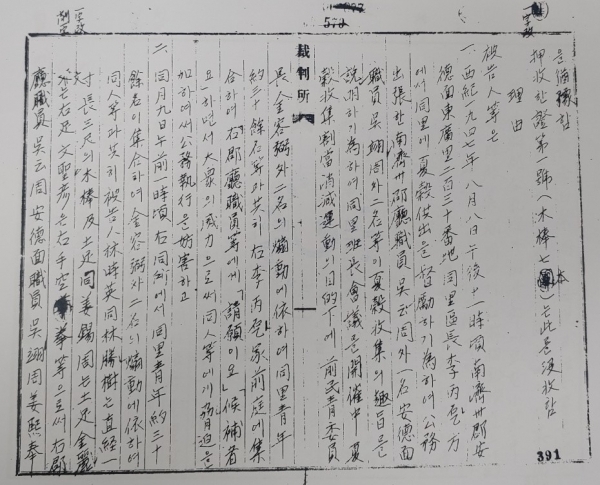 을 滴穢함
押收한 證第一號(木棒七本)는 此를 沒收함
理由
被告人等은
一. 西紀一九四七年 八月八日 午後 十一時頃 南濟州郡 安
德面 東廣里 二百三十番地 同里 區長 李丙 方
에서 同里에 夏穀供出을 督勵하기 爲하여 公務
出張한 南濟州郡廳職員 吳云周 外 一名 安德面
職員 吳 周 外 二名 等이 夏穀收集의 趣旨를
說明하기 爲하여 同里 班長會議를 開催中 夏
穀收集割當 消減運動의 目的下에 前民靑委員
裁判所
長 金容弼 外 二名의 煽動에 依하여 同里靑年
約 三十餘名 等과 共히 右 李丙 家 前庭에 集
合하여 右 郡廳職員等에게 「請願이오」「候補者
요」하면서 大衆의 威力으로써 同人等에게 脅迫을
加하여써 公務執行을 妨害하고
二. 同月 九日 午前 一時頃 右 同所에서 同里靑年 約 三十
餘名이 集合하여 金容弼 外 二名의 煽動에 依하여
同人等과 共히 被告人 林時英 同 林勝樹는 直經一
寸 長三尺의 木棒 及 土足 同 姜錫周는 土足 金麗
는 右足 文聖彦은 右手空拳 等으로써 右 郡
廳職員 吳云周 安德面職員 吳 周 姜熙奉
391